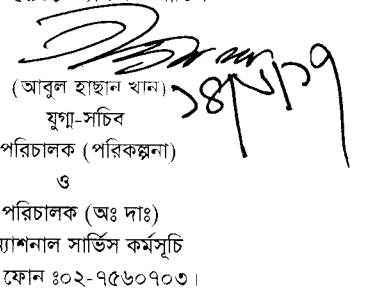 (আবুল হাছান খান)
যুগ্ম-সচিব
পরিচালক (পরিকল্পনা)
ও
পরিচালক (অঃ দাঃ)
ন্যাশনাল সার্ভিস কর্মসূচি
ফোন ঃ০২-৭৫৬০৭০৩।